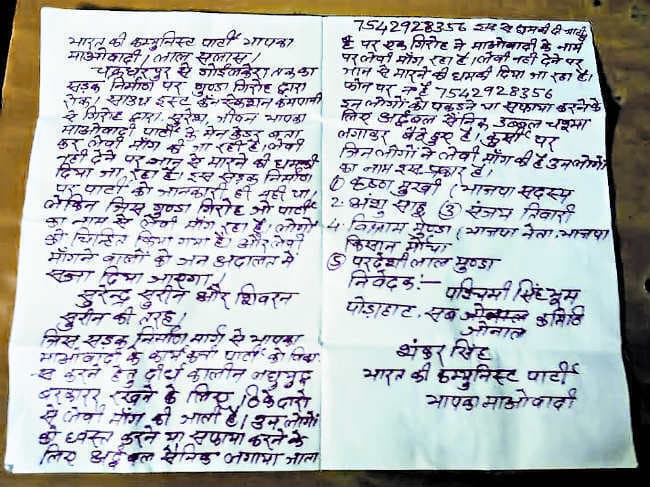 भारत की कम्युनिस्ट पार्टी भाकपा
माओवादी। लाल सलाम।
चक्रधरपुर से गोईलकेरा तक का
सड़क निर्माण पर गुण्डा गिरोह द्वारा
रोक। साउथ इस्ट कॅनसेक्शन कम्पनी
से गिरोह द्वारा सुरेश, जीवन भाकपा
माओवादी पार्टी के मेन कैडर बता
कर लेवी माँग की जा रही है। लेवी
नहीं देने पर जान से मारने की धमकी
दिया जा रहा है। इस सड़क निर्माण
पर पार्टी को जानकारी ही नहीं था।
लेकिन जिस गुण्डा गिरोह भी पार्टी
का नाम से लेवी माँग रहा है। लोगों
को चिन्हित किया गया है। और लेवी
माँगने वालों को जन अदालत में
सजा दिया जाएगा।
सुरेन्द्र सुरीन और शिवरन
सुरीन की तरह।
जिस सड़क निर्माण मार्ग से भाकपा
माओवादी के कार्य कर्ता पार्टी को
स करने हेतु दीर्घ कालीन
बरकरार रखने के लिए। ठिकेदारो
से लेवी माँग की जाती है। उन लोगों
को ध्वस्त करने या सफाया करने के
लिए अर्द्धबल सैनिक लगाया जाता
7542928356 इस से धमकी दी जाती
है पर एक गिरोह ने माओवादी के नाम
पर लेवी माँग रहा है। लेवी नहीं देने पर
जान से मारने की धमकी दिया जा रहा है।
फोन पर न० है 7542928356
इन लोगों को पकड़ने या सफाया करने के
लिए अर्द्धबल सैनिक डब्बल चश्मा
लगाकर बैठे हुए है। कुर्सी पर
जिन लोगों ने लेवी माँग की है उन लोगों
का नाम इस प्रकार है।
① कृष्णा मुखी (भाजपा सदस्य
2. अंशु साहू ③ संजय तिवारी
4. विश्राम मुण्डा (भाजपा नेता. भाजपा
किसान मोर्चा
⑤ परदेशी लाल मुण्डा
निवेदक:-
पश्चिमी सिंहभूम
पोड़ाहाट. सब कमिटि
जोनाल
शंकर सिंह
भारत की कम्युनिस्ट पार्टी
भाकपा माओवादी